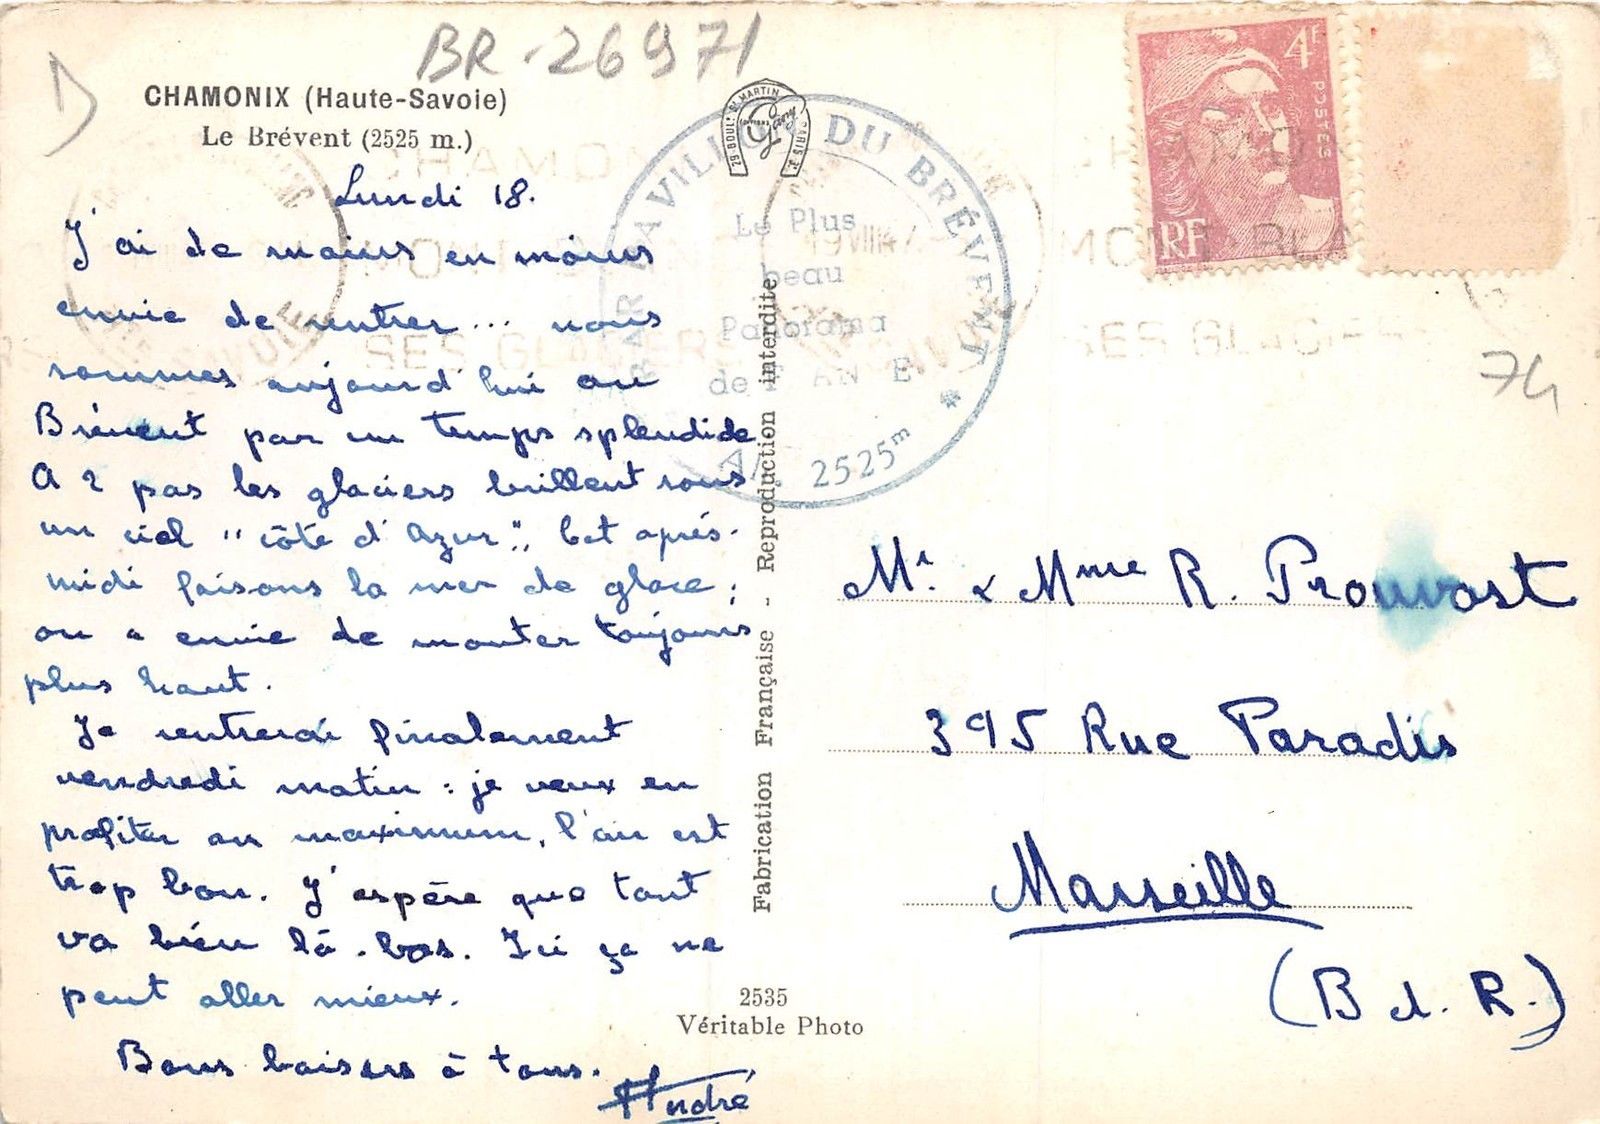 BR-26971
CHAMONIX (Haute-Savoie)
Le Brévent (2525 m.)
Lundi 18.
J'ai de moins en moins
envie de rentrer... nous
sommes aujourd'hui au
Brévent par un temps splendide
A 2 pas les glaciers brillent sous
un ciel "côte d'Azur". Cet après-
midi faisons la mer de glace ;
on a envie de monter toujours
plus haut.
Je rentrerai finalement
vendredi matin : je veux en
profiter au maximum, l'air est
trop bon. J'espère que tout
va bien là-bas. Ici ça ne
peut aller mieux.
Bons baisers à tous.
André
29 BOULd St MARTIN PARIS 3e
EDITIONS Gany
Fabrication Française - Reproduction interdite
2535
Véritable Photo
PAVILLON DU BRÉVENT
Le Plus
beau
Panorama
de
2525m
CHAMONIX
MONT BLANC
SES GLACIERS
4F
POSTES
RF
74
Mr. & Mme R. Prouvost
395 Rue Paradis
Marseille
(B d. R.)